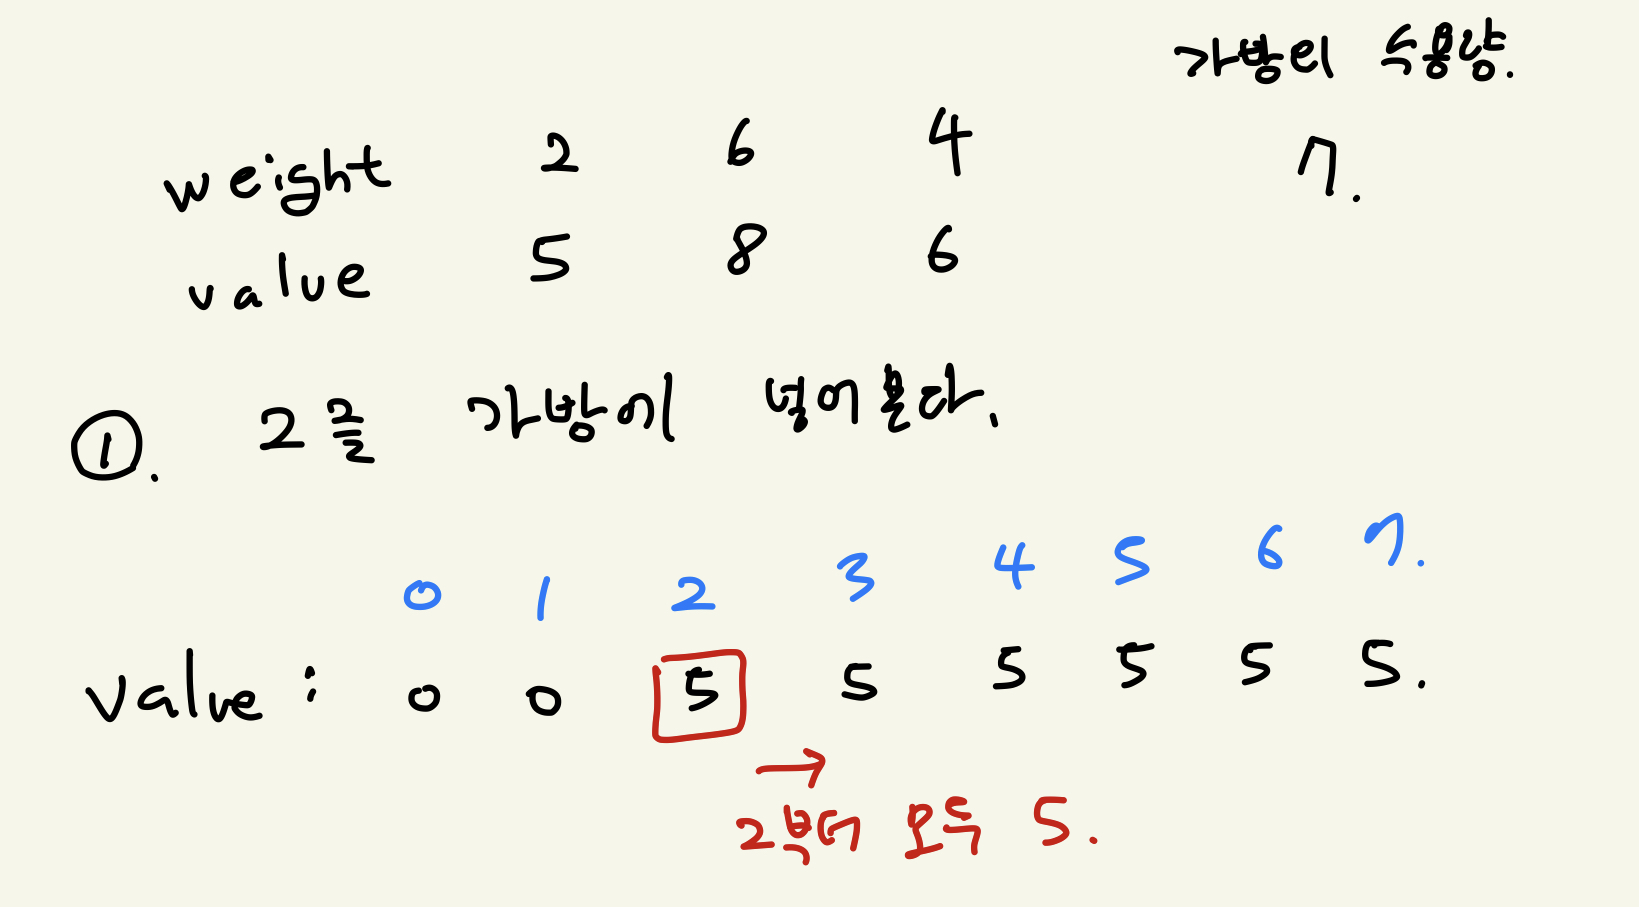 가방의 수용량.
weight 2 6 4 7.
value 5 8 6
①. 2를 가방에 넣어본다.
0 1 2 3 4 5 6 7.
value : 0 0 5 5 5 5 5 5.
→
2부터 모두 5.